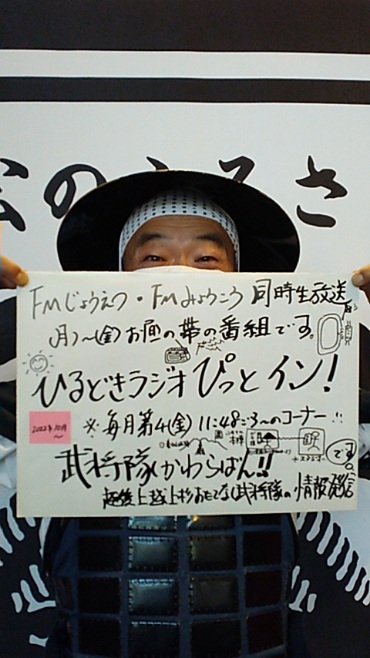 のふるさ
FMじょうえつ・FMみょうこう同時生放送
月〜(金)お昼の帯の番組です。
ひるどきラジオぴっとイン!
2022年10月〜
※毎月第4(金) 11:48ごろ〜のコーナー!!
武将隊かわらばん!!
です。
越後上越上杉おもてなし武将隊の情報発信